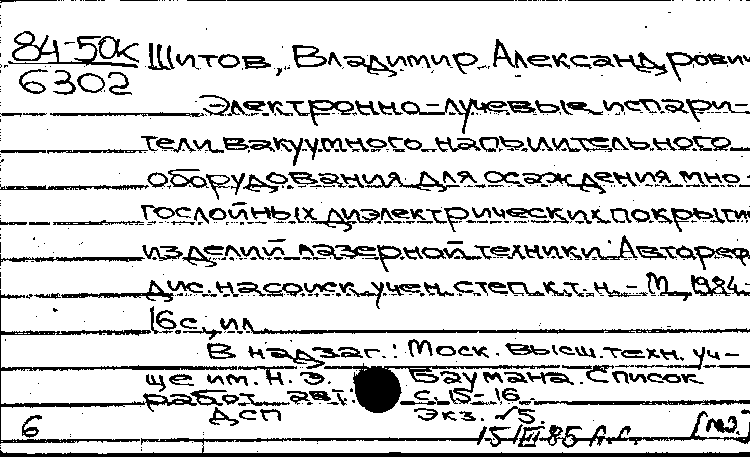 84-50К Шитов, Владимир Александрович
6302
Электронно-лучевые испари-
тели вакуумного напылительного
оборудования для осаждения мно-
гослойных диэлектрических покрытий
изделий лазерной техники: Автореф.
дис. на соиск. учен. степ. к.т.н. - М, 1984.-
16 с., ил.
В надзаг.: Моск. высш. техн. уч-
ще им. Н. Э. Баумана. Список
работ авт.: с. 15-16.
ДСП Экз. 5.
6 15 III 85